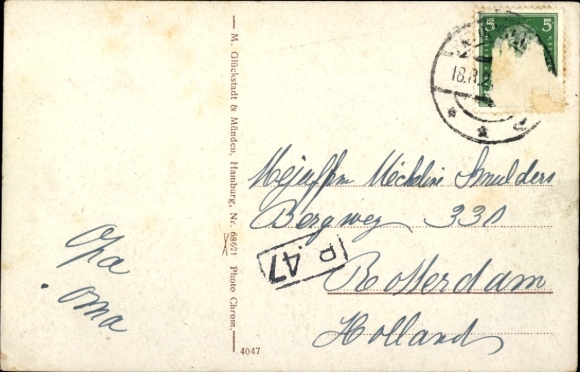 M. Glückstadt & Münden, Hamburg, Nr. 68621 Photo Chrom.
4047
Opa
oma
5 5
18.
P. 47
Mejuffr Mechline Smulders
Bergweg 330
Rotterdam
Holland